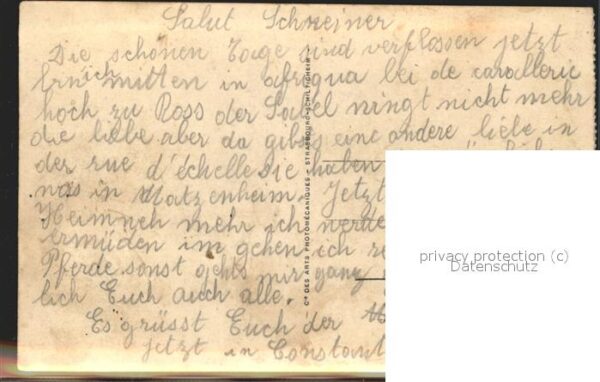 Salut Schreiner
Die schönen Tage sind verflossen jetzt
bin ich mitten in afrequa bei de cavallerie
hoch zu Ross der Säbel ningt nicht mehr
die liebe aber da gibts eine andere liebe in
der rue d'échelle die haben
nas in Matzenheim. Jetzt
Heimneh mehr ich werde
ermüden im gehen ich
Pferde sonst gehts mir ganz
lich Euch auch alle.
Es grüsst Euch der
jetzt in Constant
Cie DES ARTS PHOTOMÉCANIQUES - STRASBOURG-SCHILTIGHEIM
privacy protection (c)
Datenschutz